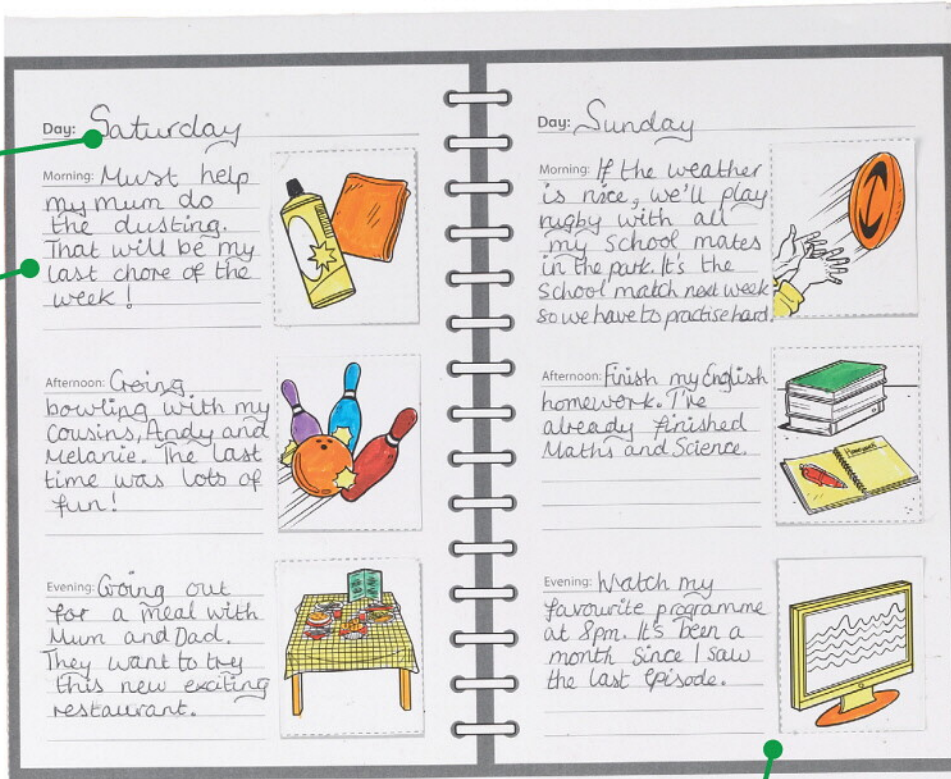 Day: Saturday
Morning: Must help
my mum do
the dusting.
That will be my
last chore of the
week!
Afternoon: Going
bowling with my
cousins, Andy and
Melanie. The last
time was lots of
fun!
Evening: Going out
for a meal with
Mum and Dad.
They want to try
this new exciting
restaurant.
Day: Sunday
Morning: If the weather
is nice, we'll play
rugby with all
my school mates
in the park. It's the
School match next week
so we have to practise hard.
Afternoon: Finish my English
homework. I've
already finished
Maths and Science.
Homework
Evening: Watch my
favourite programme
at 8pm. It's been a
month since I saw
the last episode.